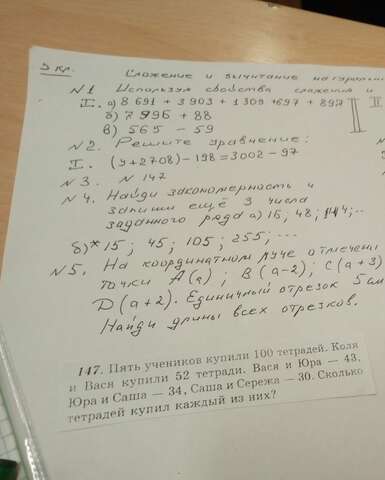 5 кр. Сложение и вычитание натуральн
N1 Используя свойства сложения и
I. а) 8 691 + 3 903 + 1 309 + 697 + 897 II
б) 7 996 + 88
в) 565 - 59
N2. Решите уравнение:
I. (У+2708) - 198 = 3002 - 97
N3. N 147
N4. Найди закономерность и
запиши ещё 3 числа
заданного ряда а) 16; 48; 144;...
б)* 15; 45; 105; 255; ...
N5. На координатном луче отмечены
точки А(а); В(а-2); С(а+3)
D(а+2). Единичный отрезок 5 см
Найди длины всех отрезков.
147. Пять учеников купили 100 тетрадей. Коля
и Вася купили 52 тетради. Вася и Юра — 43,
Юра и Саша — 34, Саша и Сережа — 30. Сколько
тетрадей купил каждый из них?